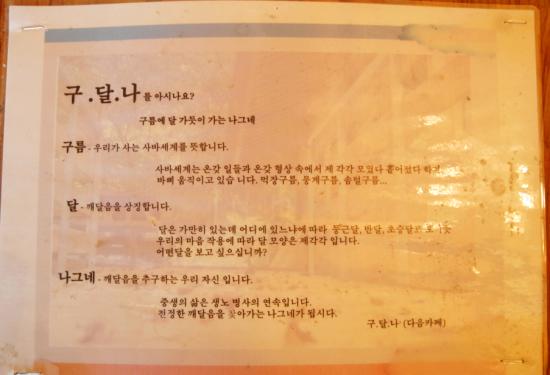 구.달.나를 아시나요?
구름에 달 가듯이 가는 나그네
구름 - 우리가 사는 사바세계를 뜻합니다.
사바세계는 온갖 일들과 온갖 형상 속에서 제 각각 모였다 흩어졌다 하고
바삐 움직이고 있습니다. 먹장구름, 뭉게구름, 솜털구름...
달 - 깨달음을 상징합니다.
달은 가만히 있는데 어디에 있느냐에 따라 둥근달, 반달, 초승달로
우리의 마음 작용에 따라 달 모양은 제각각 입니다.
어떤달을 보고 싶으십니까?
나그네 - 깨달음을 추구하는 우리 자신 입니다.
중생의 삶은 생노 병사의 연속입니다.
진정한 깨달음을 찾아가는 나그네가 됩시다.
구.달.나 (다음카페)